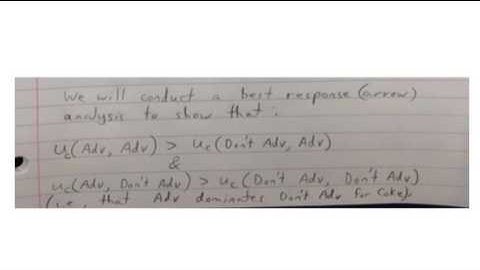 We will conduct a best response (arrow)
analysis to show that:
Uc(Adv, Adv) > Uc(Don't Adv, Adv)
&
Uc(Adv, Don't Adv) > Uc(Don't Adv, Don't Adv)
(i.e., that Adv dominates Don't Adv for Coke).